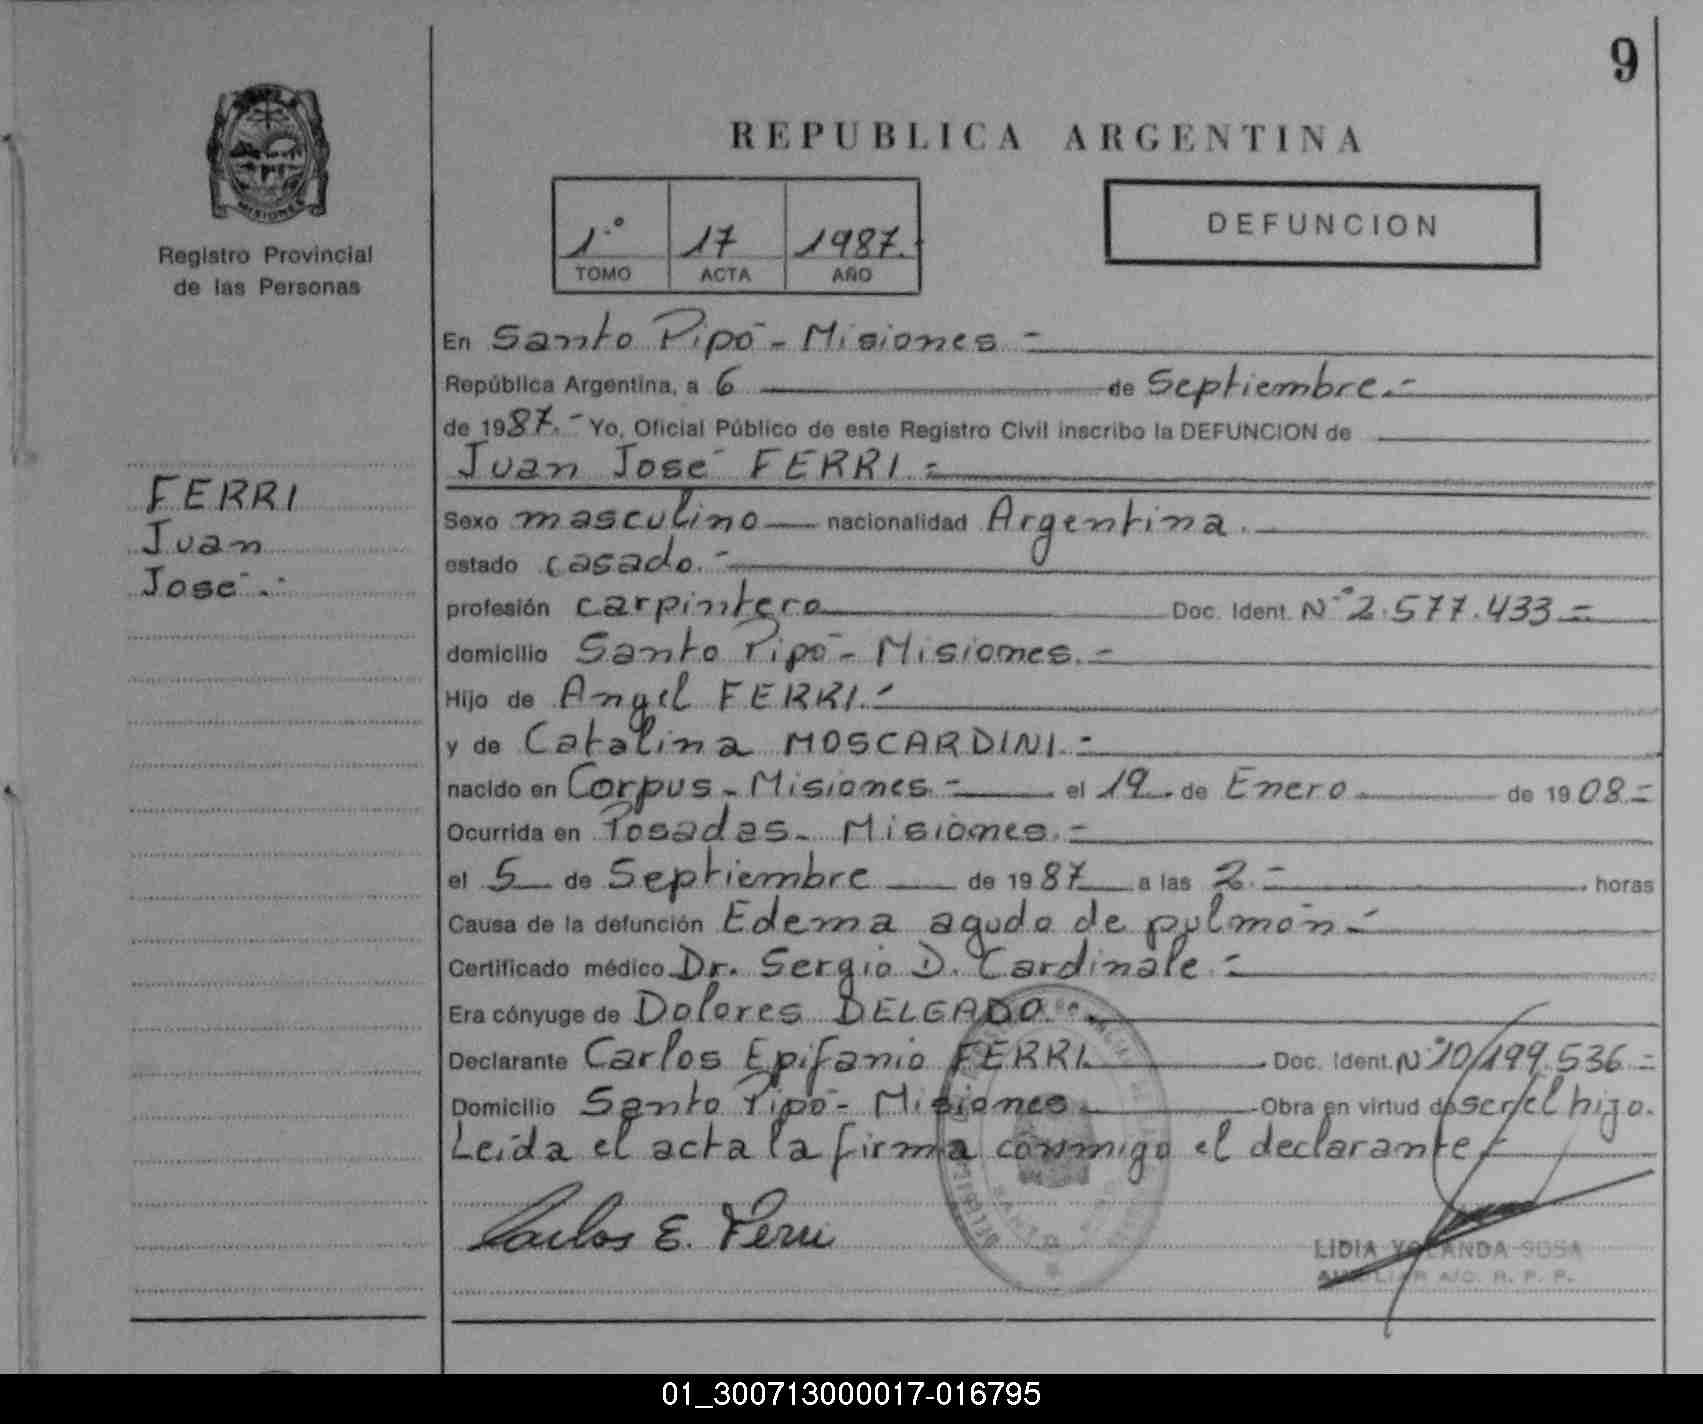 9
REPUBLICA ARGENTINA
MISIONES
Registro Provincial
de las Personas
1.º 17 1987.
TOMO ACTA AÑO
DEFUNCION
En Santo Pipó - Misiones -
República Argentina, a 6 de Septiembre.-
de 1987.- Yo, Oficial Público de este Registro Civil inscribo la DEFUNCION de
Juan José FERRI.-
FERRI
Juan
José.-
Sexo masculino nacionalidad Argentina.
estado casado.-
profesión carpintero Doc. Ident. Nº 2.577.433.-
domicilio Santo Pipó - Misiones.-
Hijo de Angel FERRI.-
y de Catalina MOSCARDINI.-
nacido en Corpus - Misiones.- el 19 de Enero de 1908.-
Ocurrida en Posadas - Misiones.-
el 5 de Septiembre de 1987 a las 2.- horas
Causa de la defunción Edema agudo de pulmón.-
Certificado médico Dr. Sergio D. Cardinale.-
Era cónyuge de Dolores DELGADO.
Declarante Carlos Epifanio FERRI. Doc. Ident. Nº 10.199.536.-
Domicilio Santo Pipó - Misiones Obra en virtud de ser el hijo.
Leída el acta la firma conmigo el declarante.-
Carlos E. Ferri
LIDIA YOLANDA SOSA
AUXILIAR A/C. R. P. P.
01_300713000017-016795